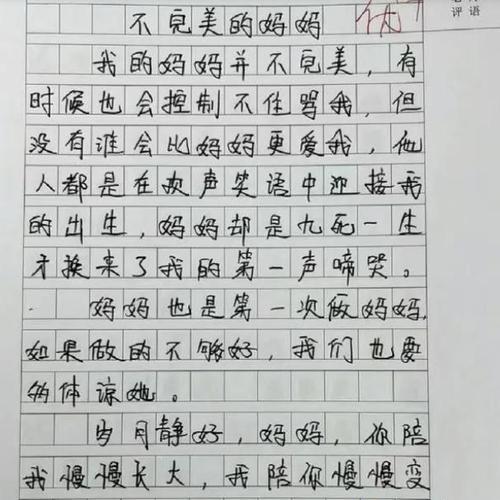 不完美的妈妈
评语
我的妈妈并不完美，有
时候也会控制不住骂我，但
没有谁会比妈妈更爱我，他
人都是在欢声笑语中迎接我
的出生，妈妈却是九死一生
才换来了我的第一声啼哭。
妈妈也是第一次做妈妈，
如果做的不够好，我们也要
多体谅她。
岁月静好，妈妈，你陪
我慢慢长大，我陪你慢慢变